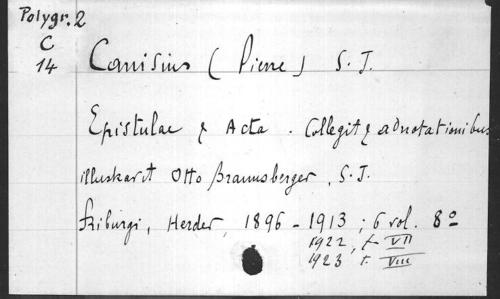 Polygr. 2
C
14
Canisius (Pierre) S. J.
Epistulae & Acta. Collegit & adnotationibus
illustravit Otto Braunsberger, S. J.
Friburgi, Herder, 1896-1913; 6 vol. 8º
1922, t. VII
1923 t. VIII